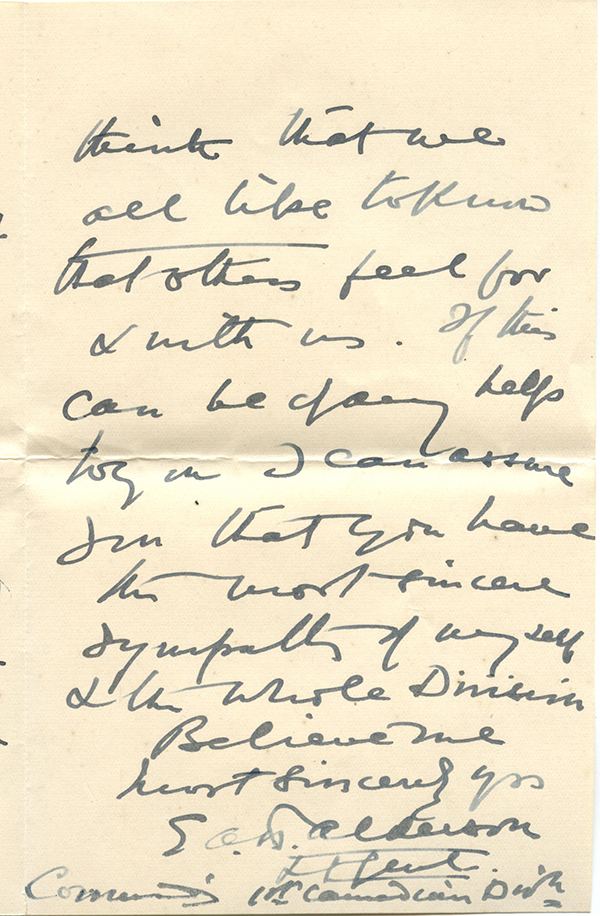 think that we
all like to know
that others feel for
& with us. If this
can be of any help
to you I can assure
you that you have
the most sincere
sympathy of myself
& the whole Division
Believe me
most sincerely yrs
E. A. H. Alderson
Lt Genl.
Commdg 1st Canadian Divn